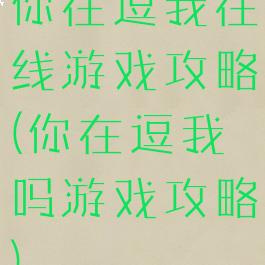 你在逗我在
线游戏攻略
(你在逗我
吗游戏攻略
)